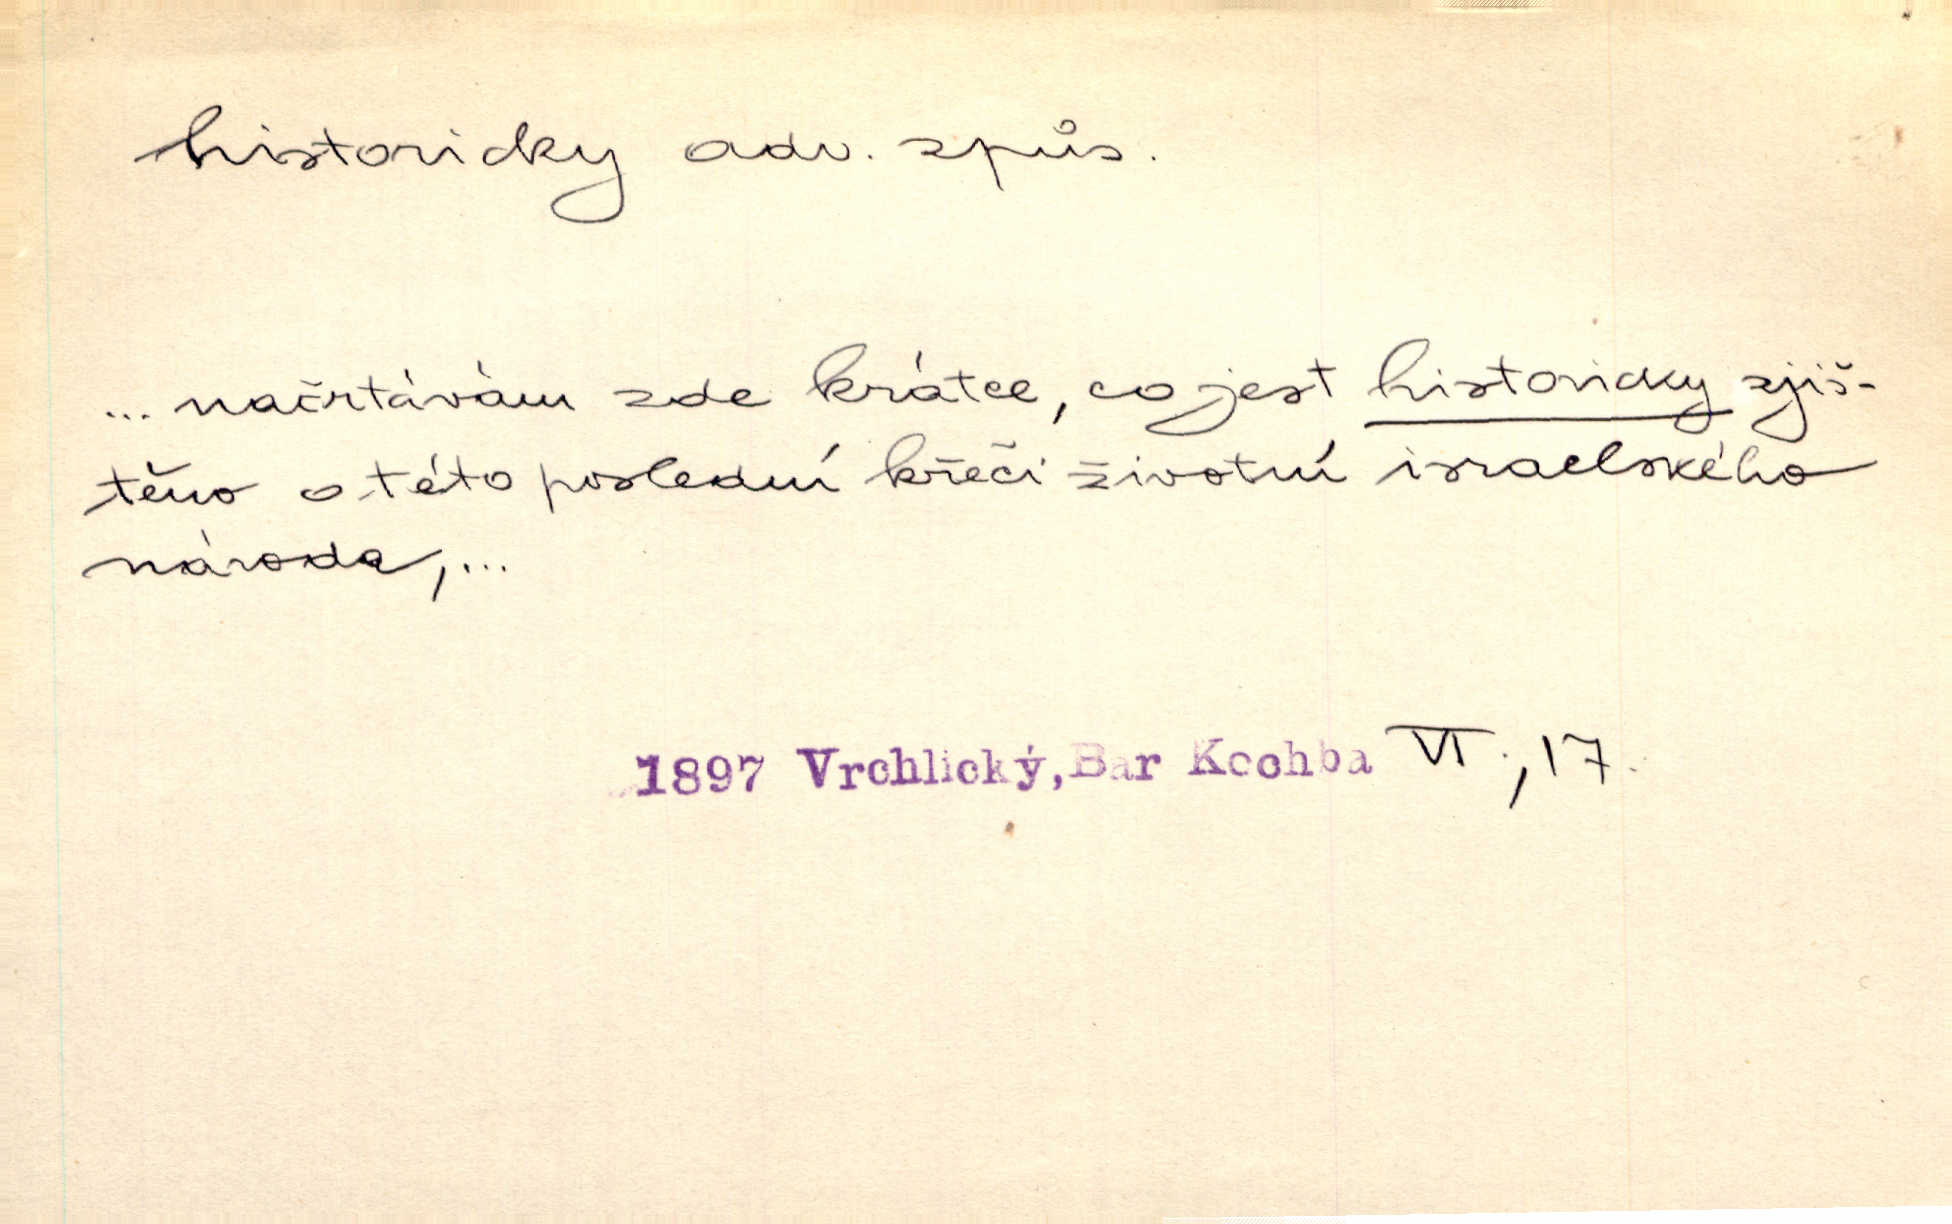 historicky adv. způs.
... načrtávám zde krátce, co jest historicky zjiš-
těno o této poslední křeči životní israelského
národa,...
1897 Vrchlický, Bar Kochba VI., 17.